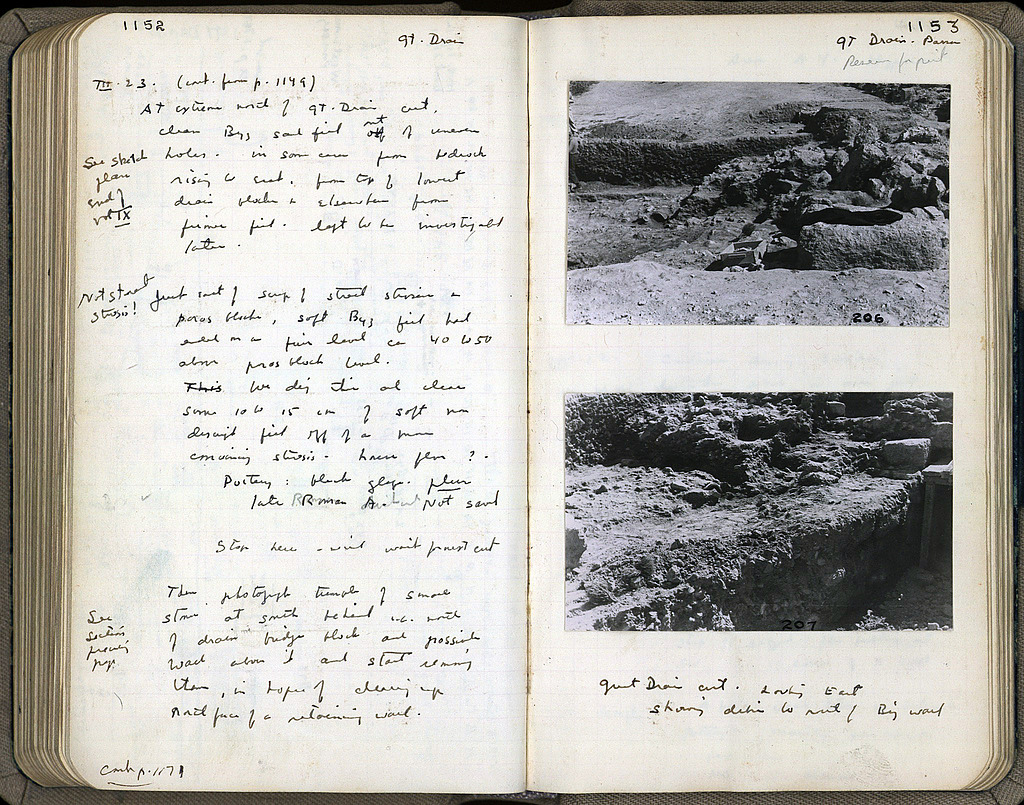 1152
gt. Drain
III. 23. (cont. from p. 1149)
At extreme north of gt. Drain cut,
clean Byz sand fill out of uneven
holes. in some cases from bedrock
rising to east. from top of lowest
drain blocks & elsewhere from
firmer fill. left to be investigated
later.
See sketch
plan
end of
vol IX
Not street
strosis!
Just east of scarp of street strosis &
poros blocks, soft Byz fill had
ended on a fair level ca 40 to 50
above poros block level.
This We dig this and clear
some 10 to 15 cm of soft non
descript fill off of a more
convincing strosis - house floor?.
Pottery: black glaze. plain
late Roman A. Not saved
Stop here - will wait for rest cut
Then photograph tumble of small
stone at south behind i.e. north
of drain bridge block and possible
wall above it and start removing
them, in hopes of clearing up
north face of a retaining wall.
See
section
previous
page
Cont. p. 1171
1153
gt Drain.
206
207
great Drain cut. Looking East
showing debris to north of Byz wall